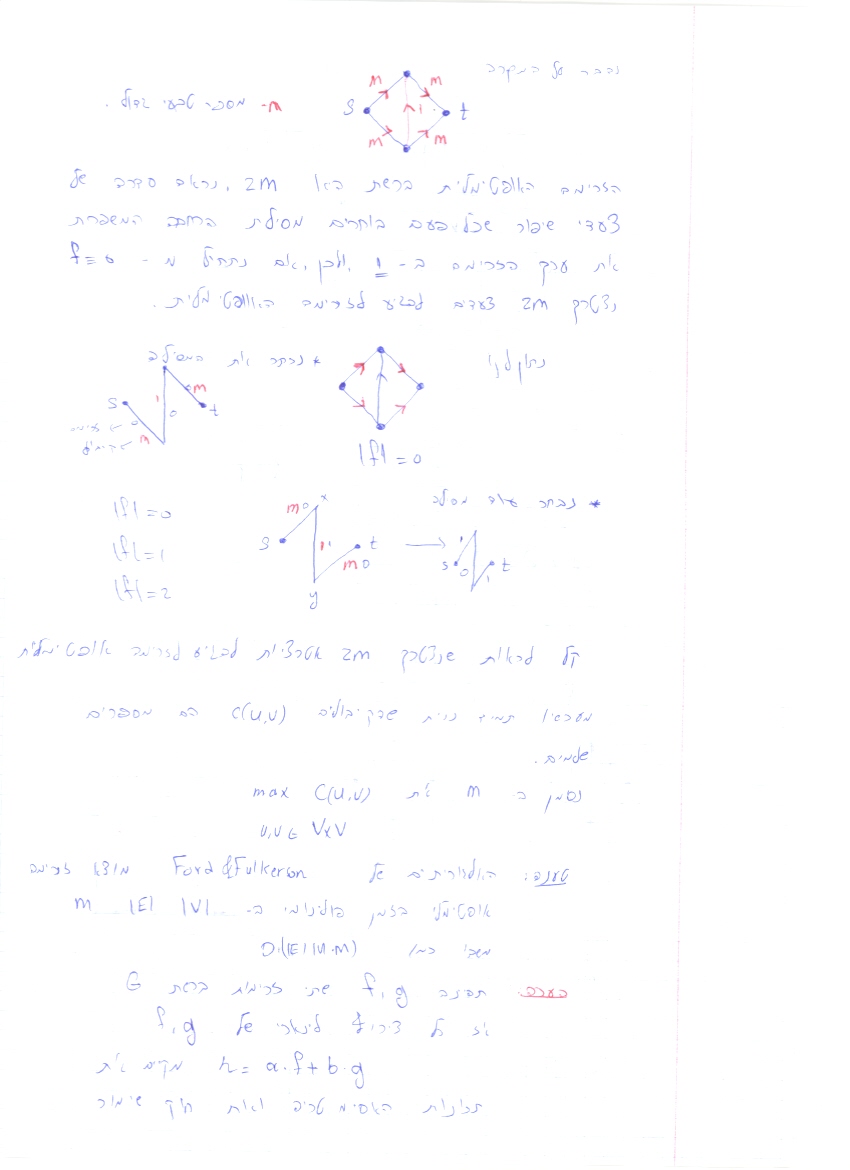 נדבר על המקרה
m m
S 1 t
m m
m - מספר טבעי גדול.
הזרימה האופטימלית ברשת היא 2m, נראה סדרה של
צעדי שיפור שכל פעם בוחרים מסילת הרחבה המשפרת
את ערך הזרימה ב - 1 ולכן, אם נתחיל מ - f≡0
נצטרך 2m צעדים להגיע לזרימה האופטימלית.
נתון לנו
* נבחר את המסילה
S m 0 1 0 m t
|f| = 0
* נבחר עוד מסילה
S m 0 x 1 1 y m 0 t
S 1 0 1 t
|f| = 0
|f| = 1
|f| = 2
קל לראות שנצטרך 2m איטרציות להגיע לזרימה אופטימלית
מעכשיו תמיד נניח שהקיבולים c(u,v) הם מספרים
שלמים.
נסמן ב m את max C(u,v)
u,v ∈ V×V
טענה: האלגוריתם של Ford & Fulkerson מוצא זרימה
אופטימלי בזמן פולינומי ב- |V| |E| m
O(|E||V|·m)
הערה: תהינה f, g שתי זרימות ברשת G
אז כל צירוף לינארי של f, g
h = a·f + b·g מקיים את
תכונות האסימטריה ואת חוק שימור